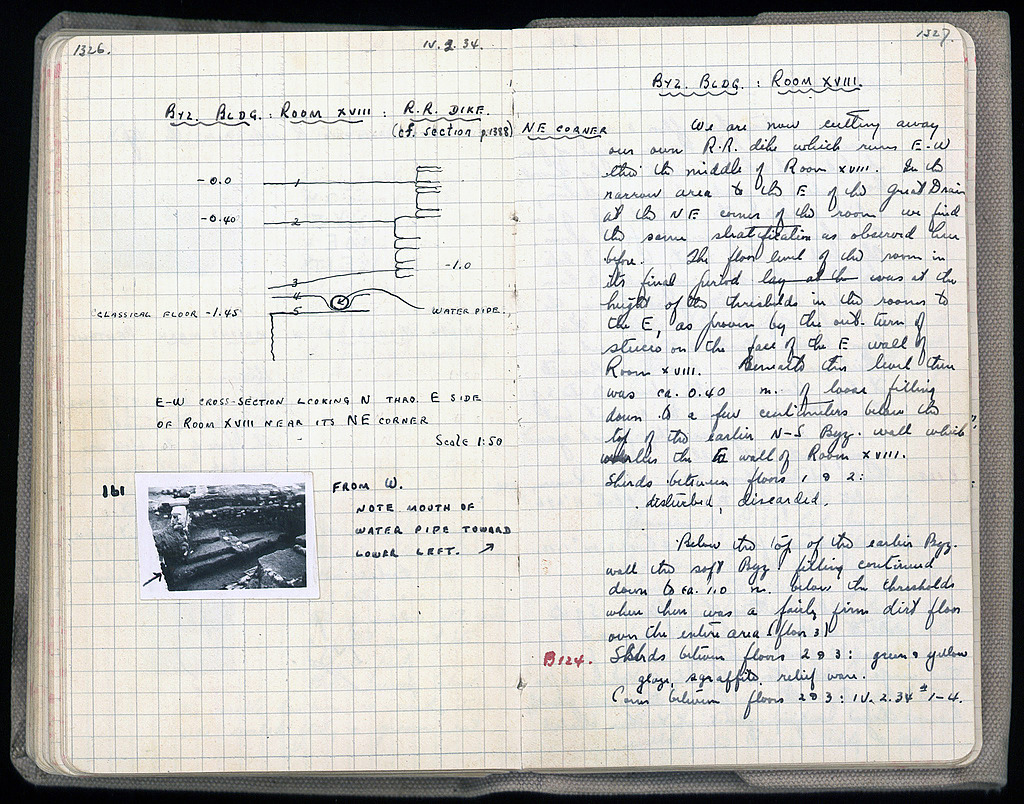 1326.
IV. 2. 34.
BYZ. BLDG. : ROOM XVIII : R.R. DIKE.
(cf. section p.1388)
-0.0
1
-0.40
2
-1.0
3
4
CLASSICAL FLOOR -1.45
5
WATER PIPE.
E-W CROSS-SECTION LOOKING N THRO. E SIDE
OF ROOM XVIII NEAR ITS NE CORNER
Scale 1:50
161
FROM W.
NOTE MOUTH OF
WATER PIPE TOWARD
LOWER LEFT.
1327.
BYZ. BLDG. : ROOM XVIII.
NE CORNER
We are now cutting away
our own R.R. dike which runs E-W
thro the middle of Room XVIII. In the
narrow area to the E of the Great Drain
at the NE corner of the room we find
the same stratification as observed here
before. The floor level of the room in
its final period lay at the was at the
height of the thresholds in the rooms to
the E, as proven by the out-turn of
stucco on the face of the E wall of
Room XVIII. Beneath this level there
was ca. 0.40 m. of loose filling
down to a few centimeters below the
top of the earlier N-S Byz. wall which
underlies the E wall of Room XVIII.
Sherds between floors 1 & 2:
disturbed, discarded.
Below the top of the earlier Byz.
wall the soft Byz. filling continued
down to ca. 1.0 m. below the thresholds
where there was a fairly firm dirt floor
over the entire area (floor 3)
B124.
Sherds between floors 2 & 3: green & yellow
glaze, sgraffito, relief ware.
Coins between floors 2 & 3: IV. 2. 34 # 1-4.